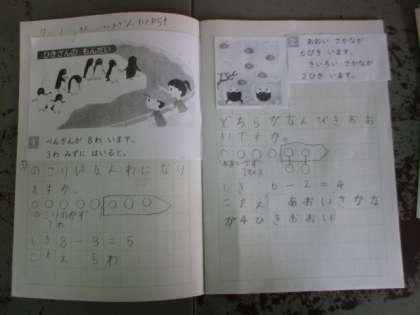 ひきざんの もんだい
1 ぺんぎんが 8わ います。
3わ みずに はいると、
のこりはなんわになり
ますか。
のこりのかず
しき 8-3=5
こたえ 5わ
2 あおい さかなが
6ぴき います。
きいろい さかなが
2ひき います。
どちらがなんびきおお
いですか。
しき 6-2=4
こたえ あおいさかな
が4ひきおおい